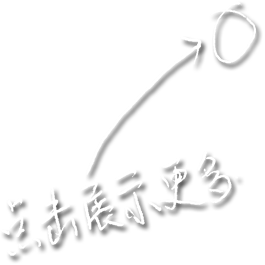 点击展示更多